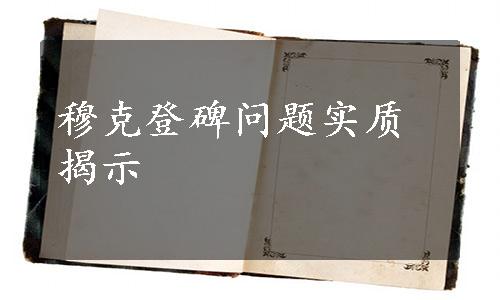 穆克登碑问题实质
揭示